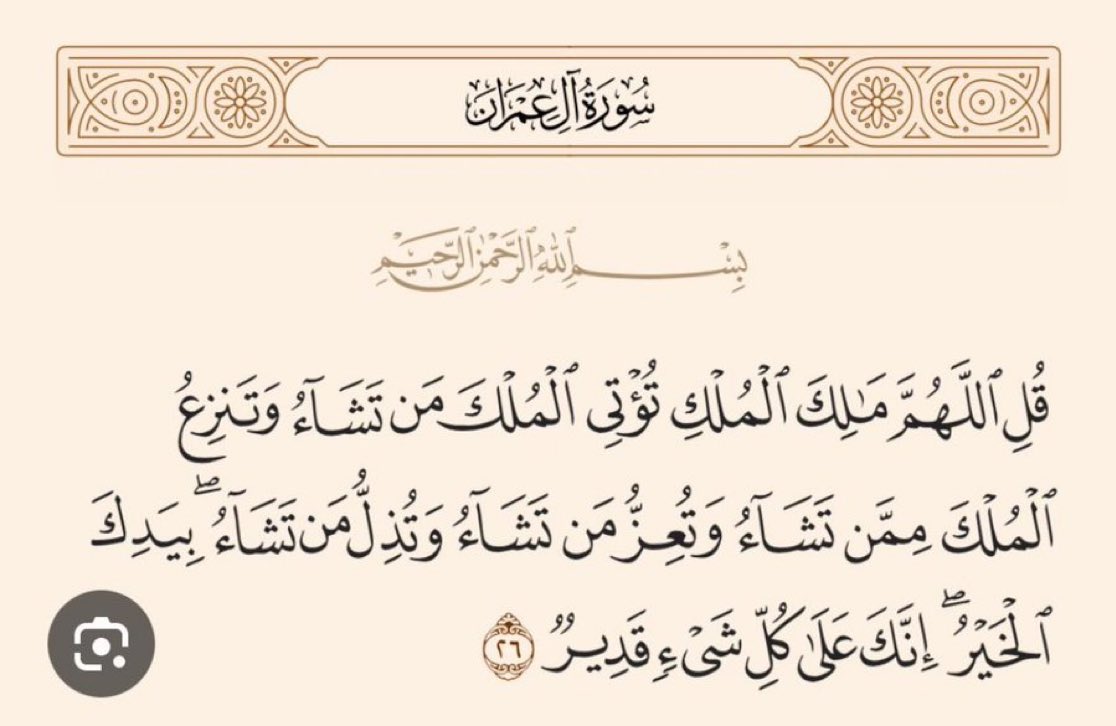 سُورَةُ آلِ عِمۡرَانَ
بِسۡمِ ٱللَّهِ ٱلرَّحۡمَٰنِ ٱلرَّحِيمِ
قُلِ ٱللَّهُمَّ مَٰلِكَ ٱلۡمُلۡكِ تُؤۡتِي ٱلۡمُلۡكَ مَن تَشَآءُ وَتَنزِعُ
ٱلۡمُلۡكَ مِمَّن تَشَآءُ وَتُعِزُّ مَن تَشَآءُ وَتُذِلُّ مَن تَشَآءُۖ بِيَدِكَ
ٱلۡخَيۡرُۖ إِنَّكَ عَلَىٰ كُلِّ شَيۡءٖ قَدِيرٞ ٢٦